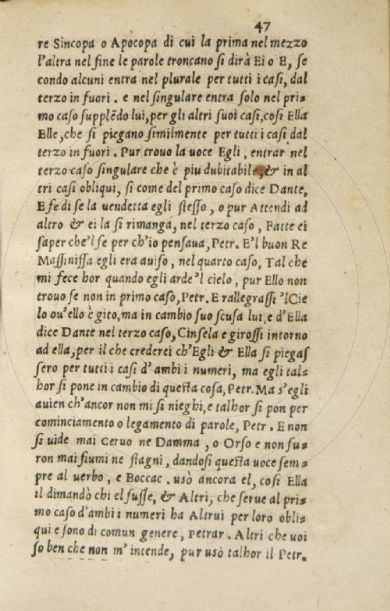 47
re Sincopa o Apocopa di cui la prima nel mezzo
l'altra nel fine le parole troncano si dirà Ei o E, se
condo alcuni entra nel plurale per tutti i casi, dal
terzo in fuori. e nel singulare entra solo nel pri-
mo caso supplẽdo lui, per gli altri suoi casi, cosi Ella
Elle, che si piegano similmente per tutti i casi dal
terzo in fuori. Pur trouo la uoce Egli, entrar nel
terzo caso singulare che è piu dubitabile, & in al
tri casi obliqui, si come del primo caso dice Dante,
E fe di se la vendetta egli stesso, o pur Attendi ad
altro & ei la si rimanga, nel terzo caso, Fatte ei
saper che'l se per ch'io pensaua, Petr. E'l buon Re
Massinissa egli era auiso, nel quarto caso, Tal che
mi fece hor quando egli arde'l cielo, pur Ello non
trouo se non in primo caso, Petr. E rallegrassi 'l Cie
lo ou'ello è gito, ma in cambio suo scusa lui, e d'Ella
dice Dante nel terzo caso, Cinsela e girossi intorno
ad ella, per il che crederei ch'Egli & Ella si piegas
sero per tutti i casi d'ambi i numeri, ma egli tal-
hor si pone in cambio di questa cosa, Petr. Ma s'egli
auien ch'ancor non mi si nieghi, e talhor si pon per
cominciamento o legamento di parole, Petr. E non
si uide mai Ceruo ne Damma, o Orso e non fu-
ron mai fiumi ne stagni, dandosi questa uoce sem-
pre al uerbo, e Boccac. usò ancora el, cosi Ella
il dimandò chi el fusse, & Altri, che serue al pri-
mo caso d'ambi i numeri ha Altrui per loro obli-
qui e sono di comun genere, Petrar. Altri che uoi
so ben che non m'intende, pur usò talhor il Petr.